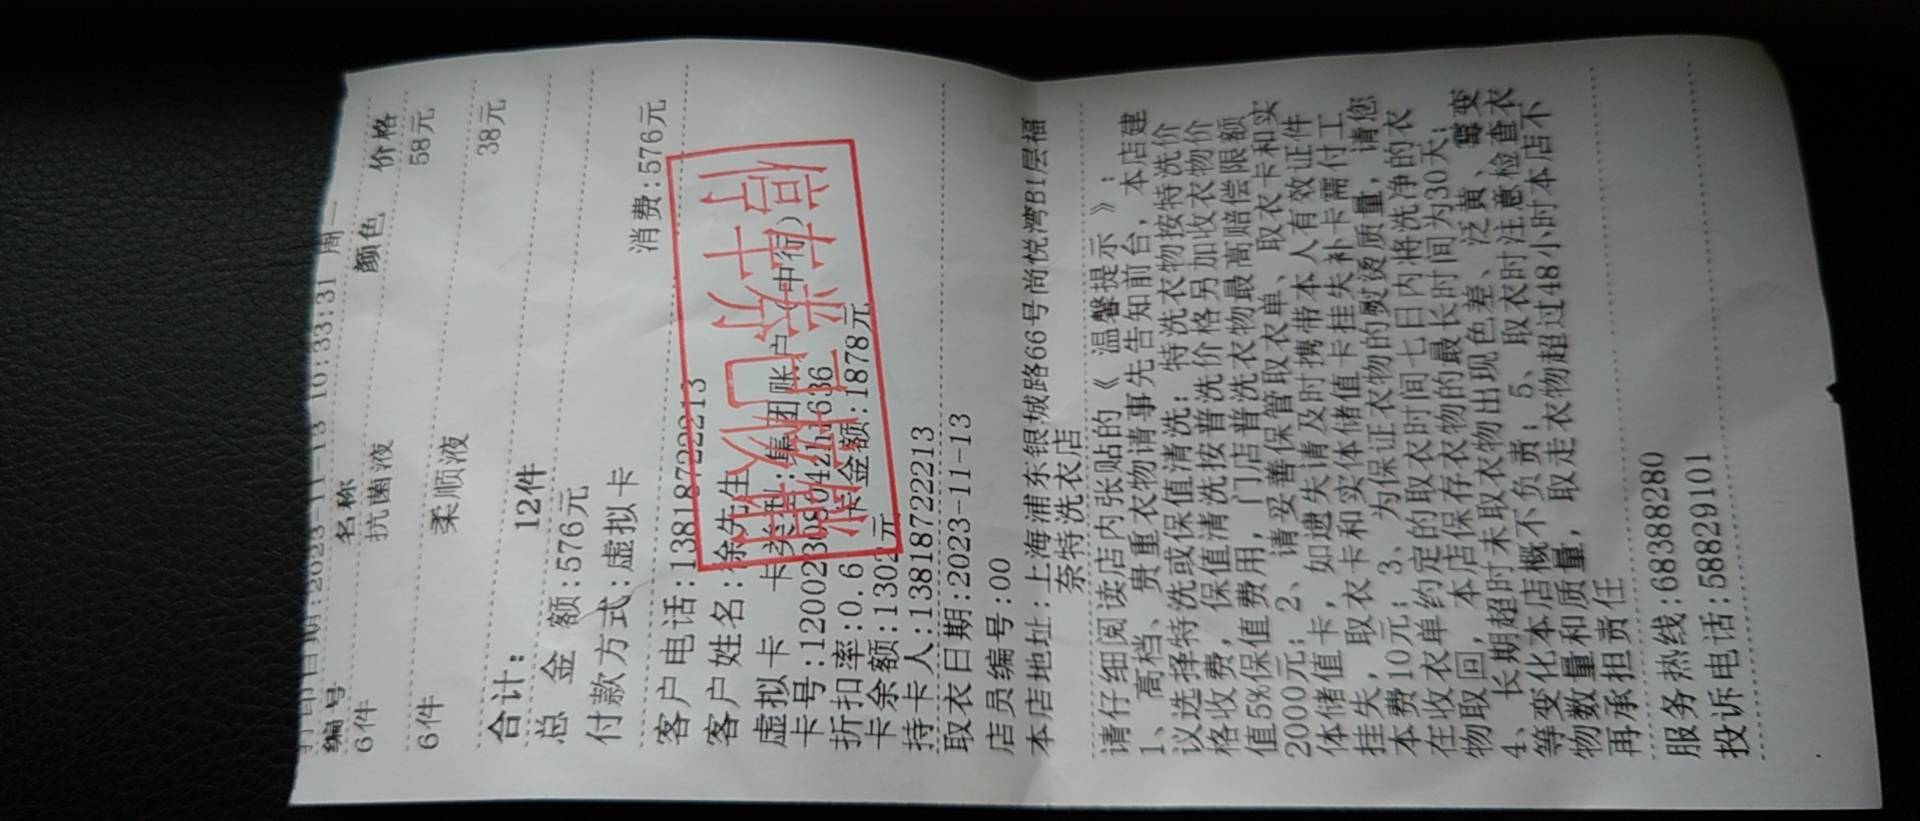 打印日期:2023-11-13 10:33:31 周一
编号 名称 颜色 价格
6件 抗菌液 58元
6件 柔顺液 38元
合计: 12件
总 金 额:576元
付款方式:虚拟卡 消费:576元
客户电话:13818722213
客户姓名:徐先生
虚拟卡 卡类型:集团账户(中行)
折扣率:0.6 卡金额:1878元
卡余额:1302元
持卡人:13818722213
取衣日期:2023-11-13
店员编号:00
本店地址:上海浦东银城路66号尚悦湾B1层福
奈特洗衣店
请仔细阅读店内张贴的《温馨提示》:
1、高档、贵重衣物请事先告知前台,本店建
议选择特洗或保值清洗:特洗衣物按特洗价
格收费,保值清洗按普洗价格另加收衣物价
值5%保值费用,门店普洗衣物最高赔偿限额
2000元;2、请妥善保管取衣单、取衣卡和实
体储值卡,如遗失请及时携带本人有效证件
挂失,取衣卡和实体储值卡挂失补卡需付工
本费10元;3、为保证衣物的熨烫质量,请您
在收衣单约定的取衣时间七日内将洗净的衣
物取回,本店保存衣物的最长时间为30天;
4、长期超时未取衣物出现色差、泛黄、霉变
等变化本店概不负责;5、取衣时注意检查衣
物数量和质量,取走衣物超过48小时本店不
再承担责任
服务热线:68388280
投诉电话:58829101